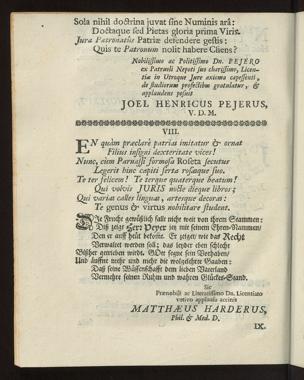 Sola nihil doctrina juvat sine Numinis arâ:
Doctaque sed Pietas gloria prima Viris.
Jura Patronatus Patriæ defendere gestis;
Quis te Patronum nolit habere Cliens?
Nobilissimo ac Politissimo Dn. PEJERO
ex Patrueli Nepoti suo charissimo, Licen-
tiæ in Utroque Jure axioma capessenti,
de studiorum profectibus gratulatur, &
applaudens posuit
JOEL HENRICUS PEJERUS,
V. D. M.
VIII.
EN quàm præclarè patrias imitatur & ornat
Filius insigni dexteritate vices!
Nunc, eiem Parnassi formosa Roseta secutus
Legerit hinc capiti serta rosasque suo.
Te ter felicem! Te terque quaterque beatum!
Qui volvis JURIS nocte dieque libros;
Qui varias calles linguas, artesque decoras:
Te genus & virtus nobilitare student.
Die Frucht gewißlich fallt nicht weit von ihrem Stammen:
Diß zeigt Herr Peyer jez mit seinem Ehren-Nammen,
Den er aufs heut bekom̃t. Er zeiget wie das Recht
Verwaltet werden soll; das leyder eben schlecht
Bißher getrieben wirdt. GOtt segne sein Vorhaben/
Und äuffne mehr und mehr die wolgelehrte Gaaben:
Daß seine Wüssenschafft dem lieben Vaterland
Vermehre seinen Ruhm und wahren Glückes-Stand.
Sic
Prænobili ac Literatissimo Dn. Licentiato
votivo applausu accinit
MATTHÆUS HARDERUS,
Phil. & Med. D.
IX.